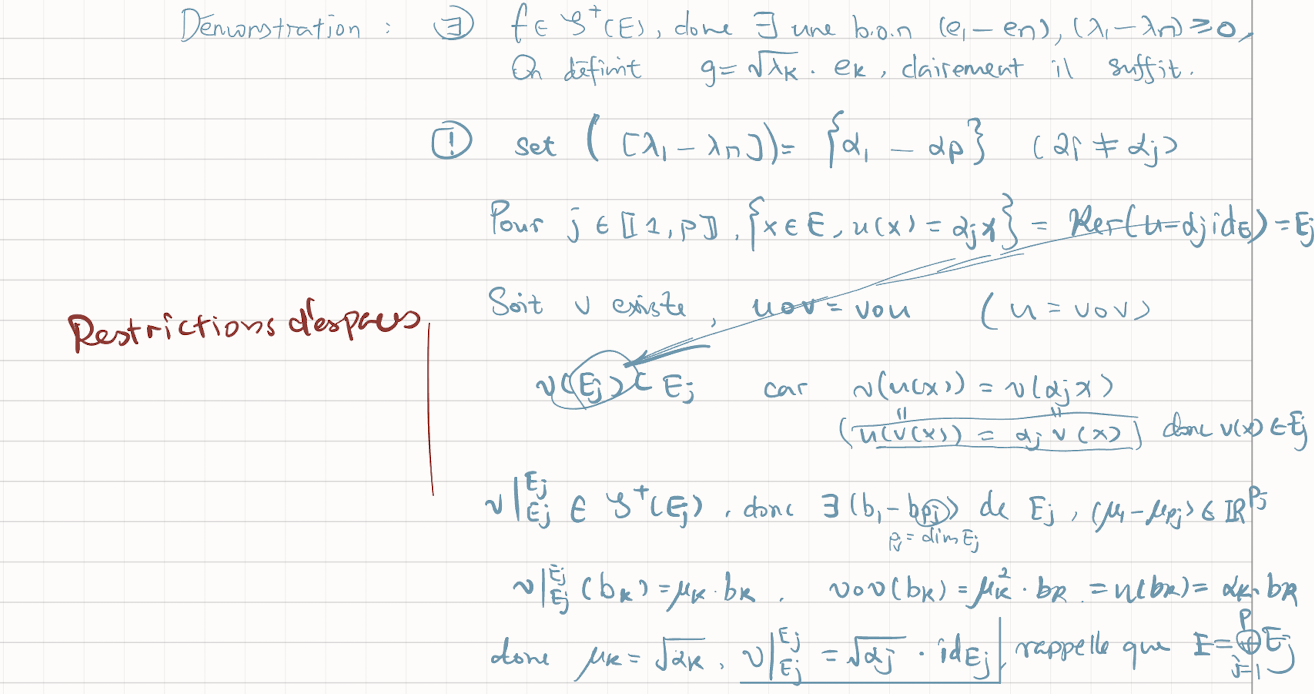 Démonstration : ∃ f ∈ S⁺(E), donc ∃ une b.o.n (e₁ – en), (λ₁ – λn) ≥ 0,
On définit g = √λK · eK, clairement il suffit.
! set ([λ₁ – λn]) = {α₁ – αp} (αi ≠ αj)
Pour j ∈ ⟦1, p⟧, {x ∈ E, u(x) = αjx} = Ker(u – αj idE) = Ej
Soit v existe, uov = vou (u = vov)
Restrictions d'espaces
v(Ej) ⊂ Ej car v(u(x)) = v(αjx)
(u(v(x)) = αj v(x)) donc v(x) ∈ Ej
v|Ej Ej ∈ S⁺(Ej), donc ∃ (b₁ – bpj) de Ej, (μ₁ – μpj) ∈ ℝ^pj
pj = dim Ej
v|Ej Ej (bK) = μK · bK, vov(bK) = μK² · bK = u(bK) = αK · bK
donc μK = √αK, v|Ej Ej = √αj · idEj, rappelle que E = ⊕ p j=1 Ej